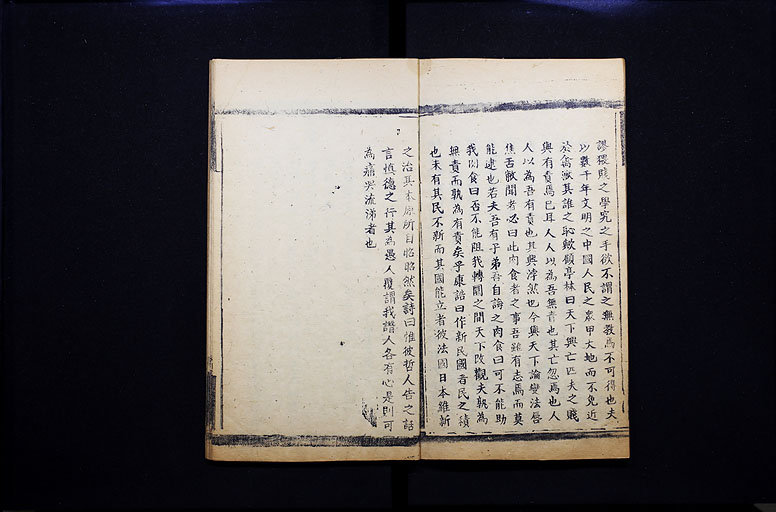 謬猥賤之學究之手欲不謂之無教焉不可得也夫
以數千年文明之中國人民之眾甲大地而不免近
於禽獸其誰之恥歟顧亭林曰天下興亡匹夫之賤
與有責焉已耳人人以為吾無責也其亡忽焉也人
人以為吾有責也其興浡然也今與天下論變法唇
焦舌敝聞者必曰此肉食者之事吾雖有志焉而莫
能逮也若夫吾有子弟吾自誨之肉食曰可不能助
我肉食曰否不能阻我轉圜之間天下改觀夫孰為
無責而孰為有責矣乎康誥曰作新民國者民之積
也未有其民不新而其國能立者彼法國日本維新
之治其本原所自昭昭然矣詩曰惟彼哲人告之話
言慎德之行其為愚人覆謂我譖人各有心是則可
為痛哭流涕者也